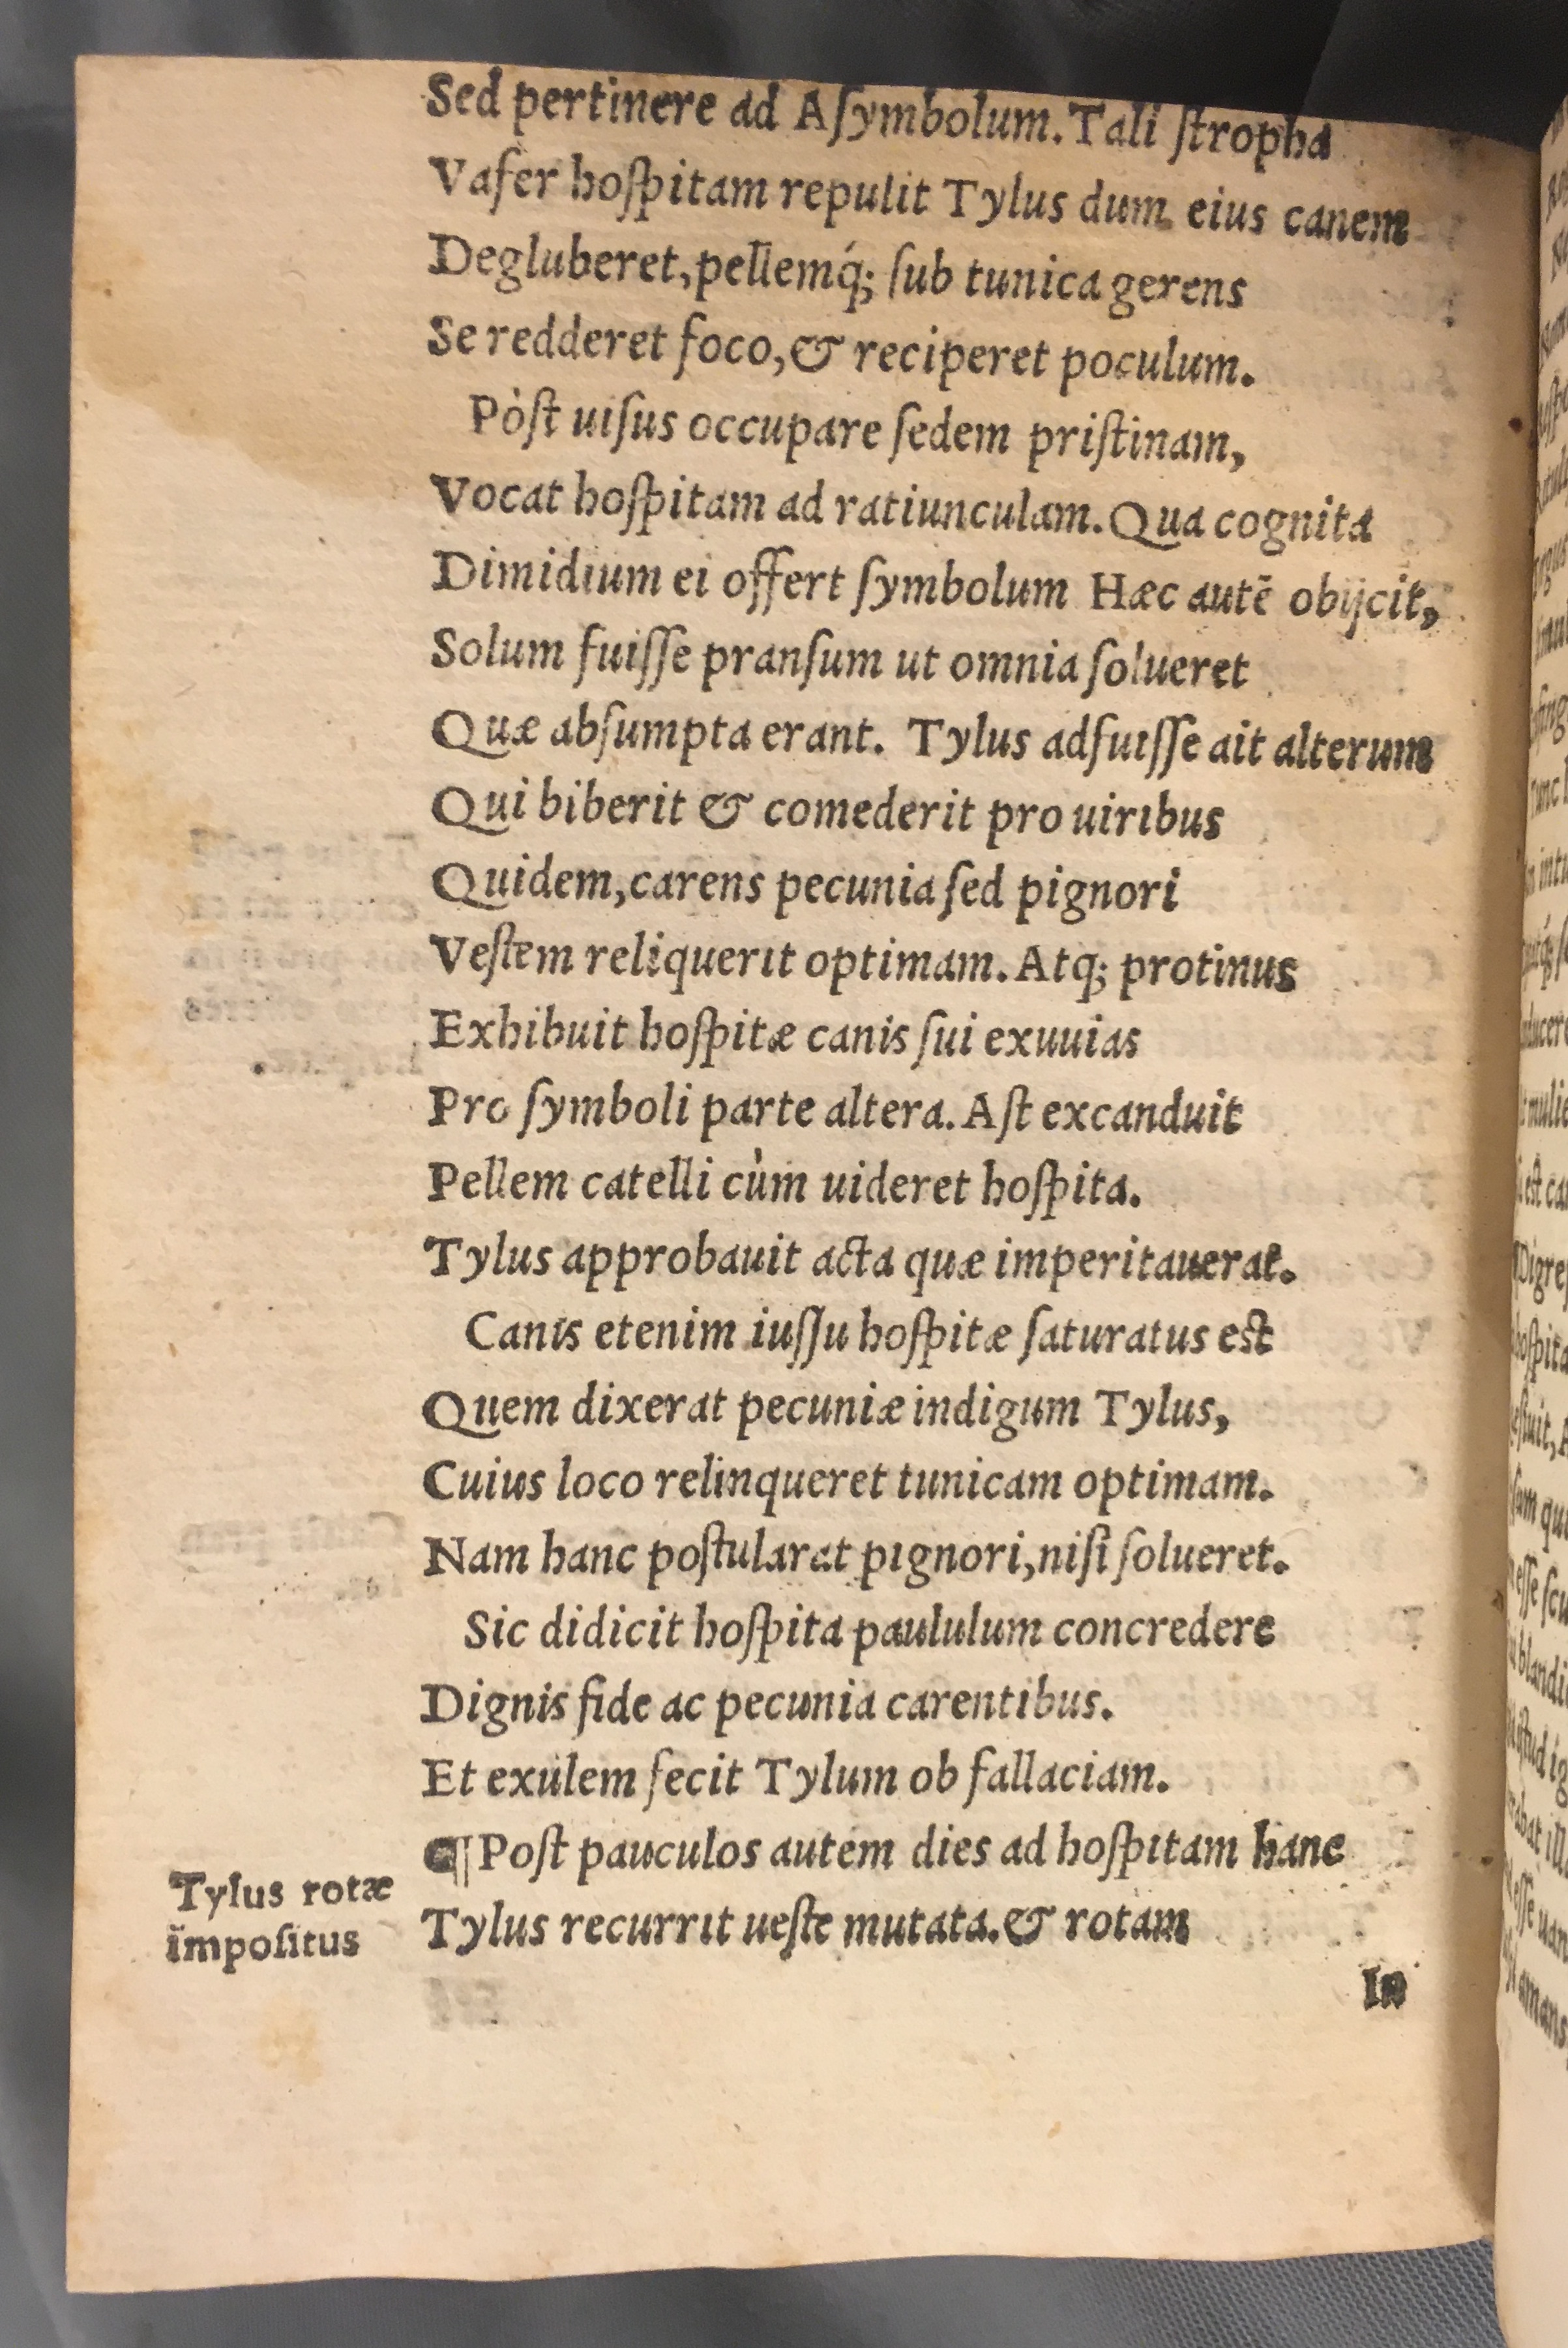 Sed pertinere ad Aſymbolum. Tali ſtropha
Vafer hoſpitam repulit Tylus dum eius canem
Degluberet, pellemq́; ſub tunica gerens
Se redderet foco, & reciperet poculum.
Pòſt uiſus occupare ſedem priſtinam,
Vocat hoſpitam ad ratiunculam. Qua cognita
Dimidium ei offert ſymbolum Hæc autē obijcit,
Solum fuiſſe pranſum ut omnia ſolueret
Quæ abſumpta erant. Tylus adfuiſſe ait alterum
Qui biberit & comederit pro uiribus
Quidem, carens pecunia ſed pignori
Veſtem reliquerit optimam. Atq; protinus
Exhibuit hoſpitæ canis ſui exuuias
Pro ſymboli parte altera. Aſt excanduit
Pellem catelli cùm uideret hoſpita.
Tylus approbauit acta quæ imperitauerat.
Canis etenim iuſſu hoſpitæ ſaturatus eſt
Quem dixerat pecuniæ indigum Tylus,
Cuius loco relinqueret tunicam optimam.
Nam hanc poſtularat pignori, niſi ſolueret.
Sic didicit hoſpita paululum concredere
Dignis fide ac pecunia carentibus.
Et exulem fecit Tylum ob fallaciam.
¶ Poſt pauculos autem dies ad hoſpitam hanc
Tylus rotæ
impoſitus
Tylus recurrit ueſte mutata. & rotam
In